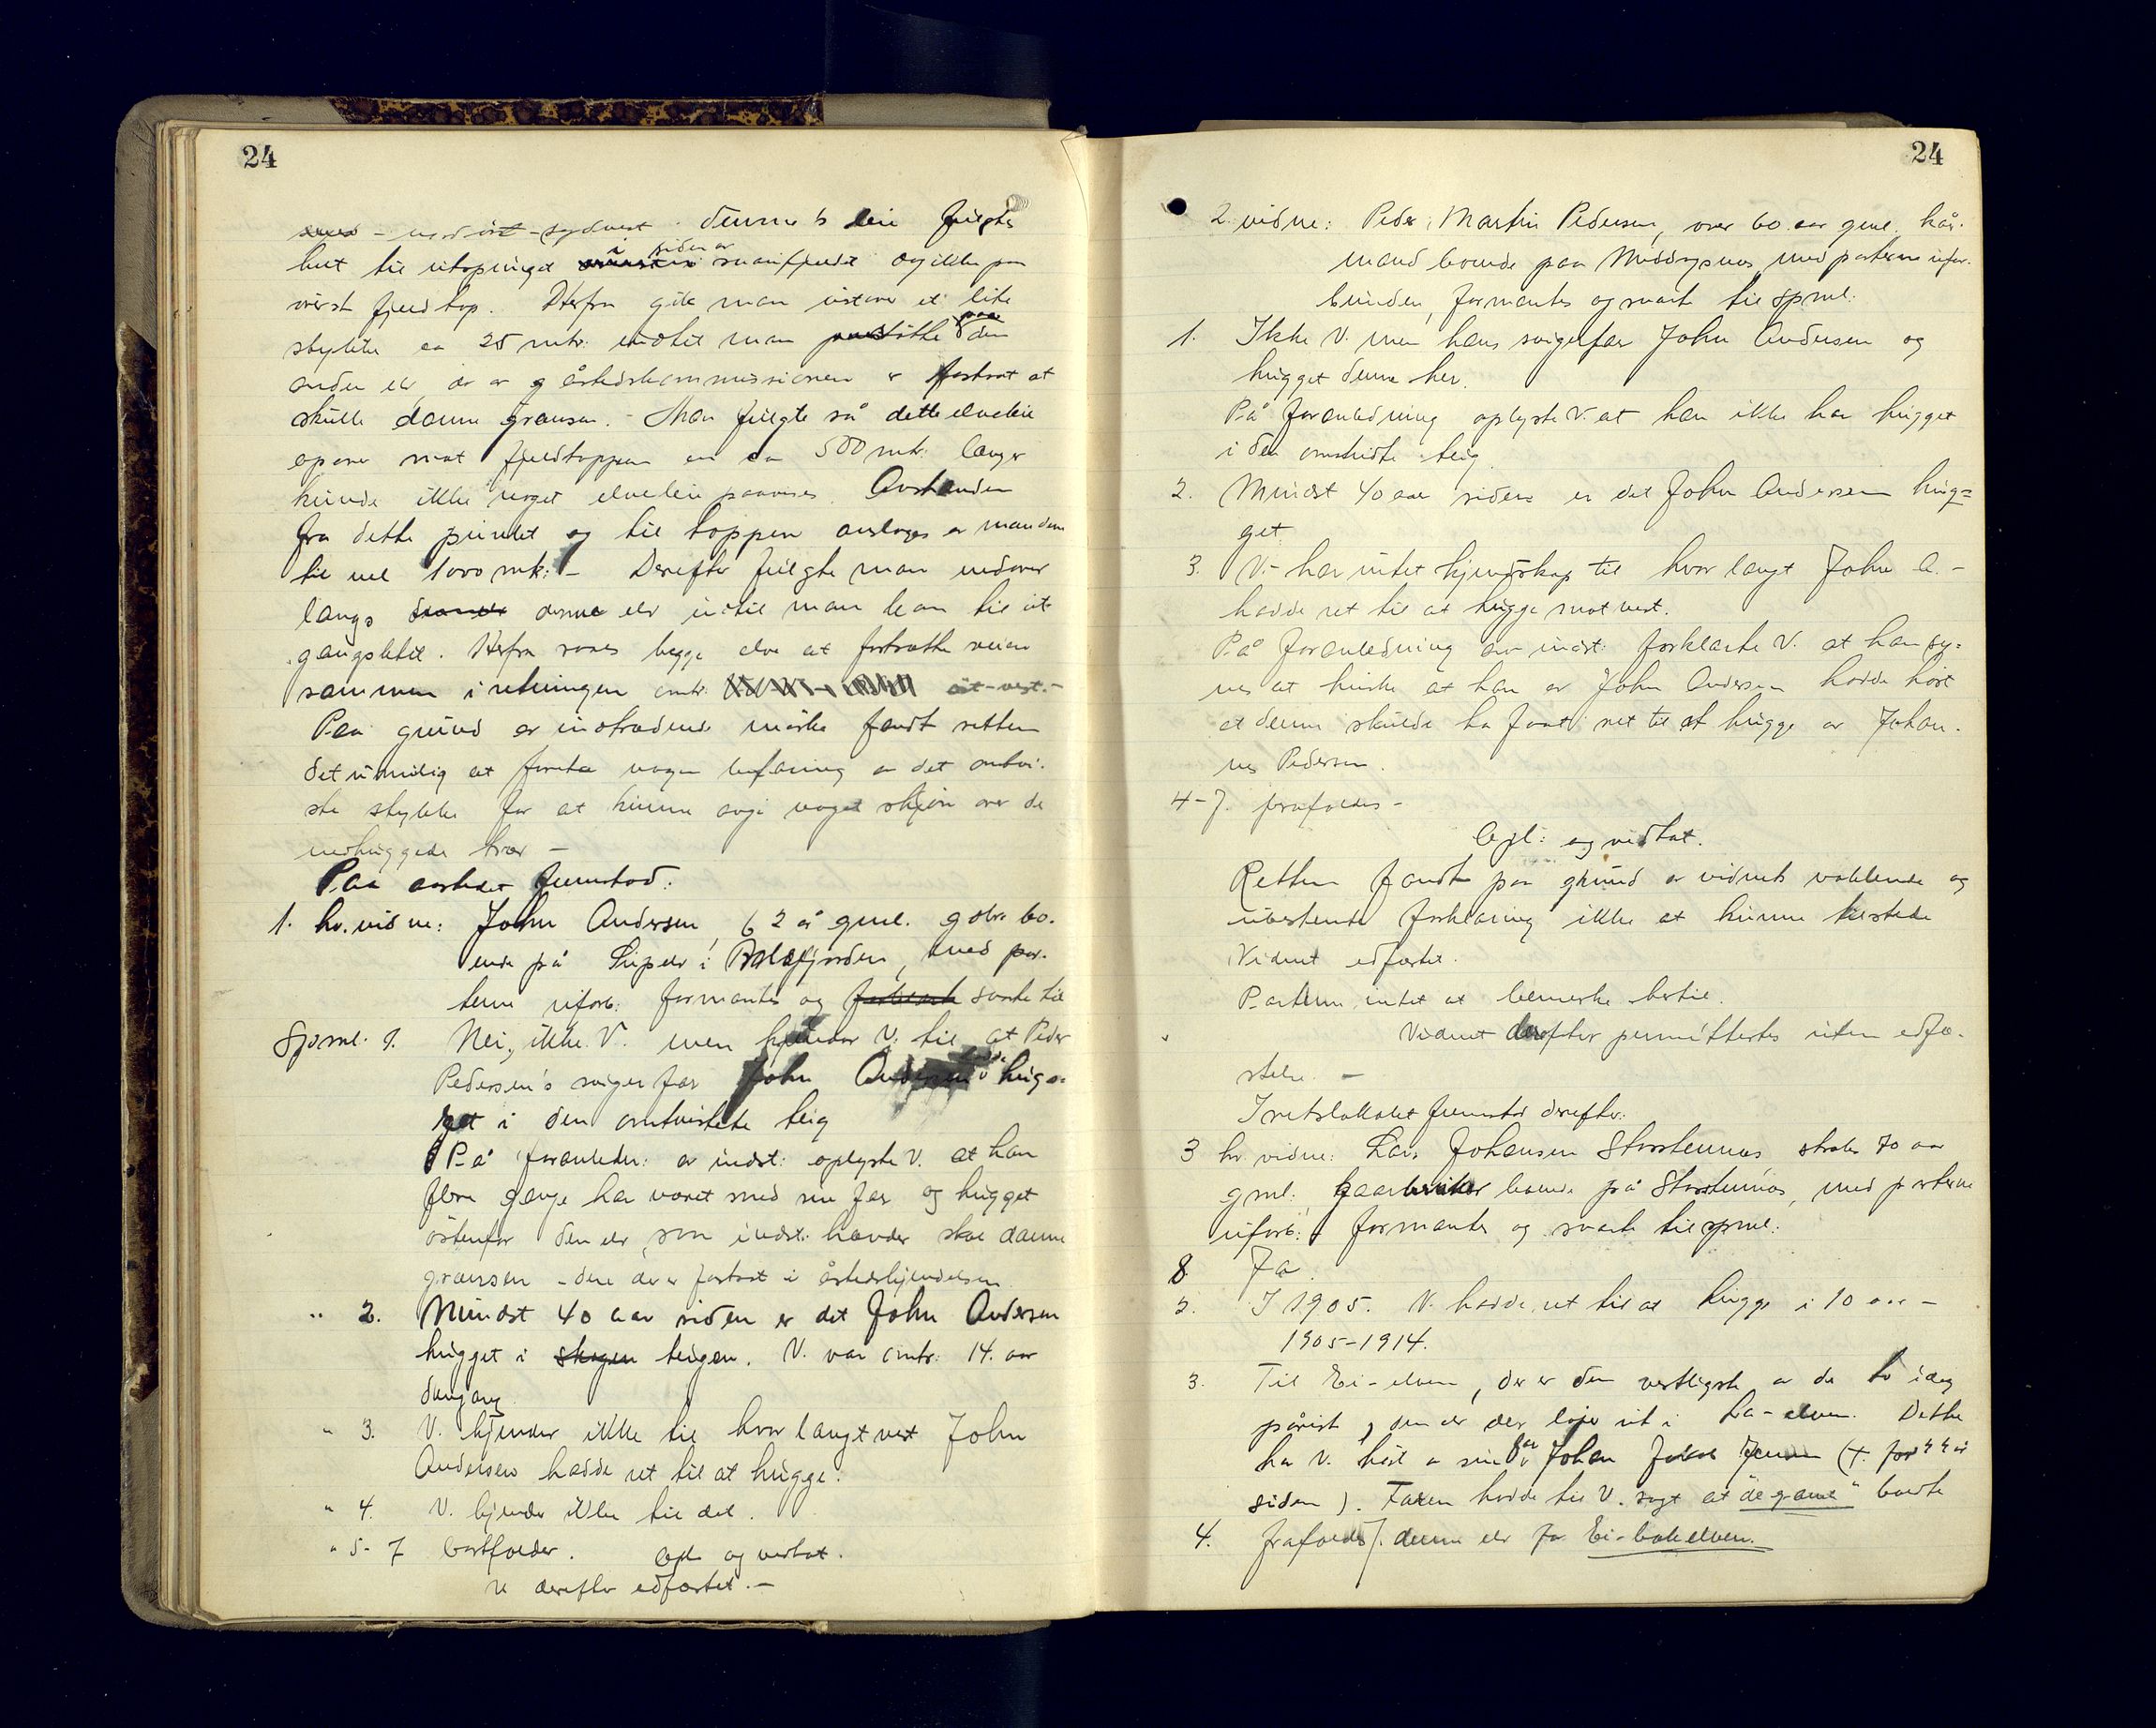 24
- nordöst - sydvest. Denne's leie fulgtes
hut til utspringet i siden av snaufjeldet og ikke paa
överst fjeldtop. Herfra gik man östover et lite
stykke ca 25 mtr. indtil man stötte paa den
anden elv, der av åstedskommissionen er fastsat at
skulle danne grænsen. - Man fulgte så dette elveleie
opover mot fjeldtoppen ca 500 mtr. længer
kunde ikke noget elveleie paavises. Avstanden
fra dette punktet og til toppen ansloges av mændene
til vel 1000 mtr. - Derefter fulgte man nedover
langs denne elv indtil man kom til ut-
gangsstedet. Herfra saaes begge elve at fortsætte veien
sammen i retningen omtr. öst-vest. -
Paa grund av indtrædende mörke fandt retten
det umulig at foreta nogen befaring av det omtvi-
ste stykke for at kunne avgi noget skjön over de
nedhuggede trær -
Paa aastedet fremstod:
1. hv. vidne: John Andersen, 62 år gml. gbr. bo-
ende på Slipelv i Balsfjorden, med par-
terne uforb. formantes og svarte til
Spsml. 1. Nei, ikke V. men kjender V. til at Peder
Pedersen's svigerfar John Andersen hadde hug-
get i den omtvistede teig
På foranledn: av indst: oplyste V. at han
flere gange har været med sin far og hugget
östenfor den elv, som indst. hævder skal danne
grænsen - den der er fastsat i åstedskjendelsen.
" 2. Mindst 40 aar siden er det John Andersen
hugget i teigen. V. var omtr. 14. aar
dengang.
" 3. V. kjender ikke til hvor langt vest John
Andersen hadde ret til at hugge.
" 4. V. kjender ikke til det.
" 5-7 bortfalder. Opl. og vedtat.
V. derefter edfæstet. -
24
2. vidne: Peder Martin Pedersen, over 60 aar gml. går-
mand boende paa Middagsnes, med parterne ufor-
bunden, formantes og svarte til spml:
1. Ikke V. men hans svigerfar John Andersen og
hugget denne her.
På foranledning oplyste V. at han ikke har hugget
i den omstridte teig.
2. Mindst 40 aar siden er det John Andersen hug=
get.
3. V. har intet kjendskap til hvor langt John A. -
hadde ret til at hugge mot vest.
På foranledning av indst: forklarte V. at han sy=
nes at huske at han av John Andersen hadde hört
at denne skulde ha faat ret til at hugge av Johan-
nes Pedersen.
4-7. frafaldes -
Opl: og vedtat.
Retten fandt paa grund av vidnets vaklende og
ubestemte forklaring ikke at kunne tilstede
Vidnet edfæstet.
Parterne intet at bemerke hertil.
Vidnet derefter permittertes uten edfæ-
stelse. -
I retslokalet fremstod derefter:
3 hv. vidne: Lars Johansen Storsteinnes straks 70 aar
gml. gaardbruker boende på Storsteinnes, med parterne
uforb. formantes og svarte til spml.
8. Ja.
2. I 1905. V. hadde ret til at hugge i 10 aar -
1905-1914.
3. Til Ei-elven, der er den vestligste av de to idag
påvist, den der löper ut i La-elven. Dette
har V. hört av sin far Johan Jensen (+ for 44 år
siden). Faren hadde til V. sagt at "de gamle" kaldte
4. frafaldes /. denne elv for Ei-bækelven.